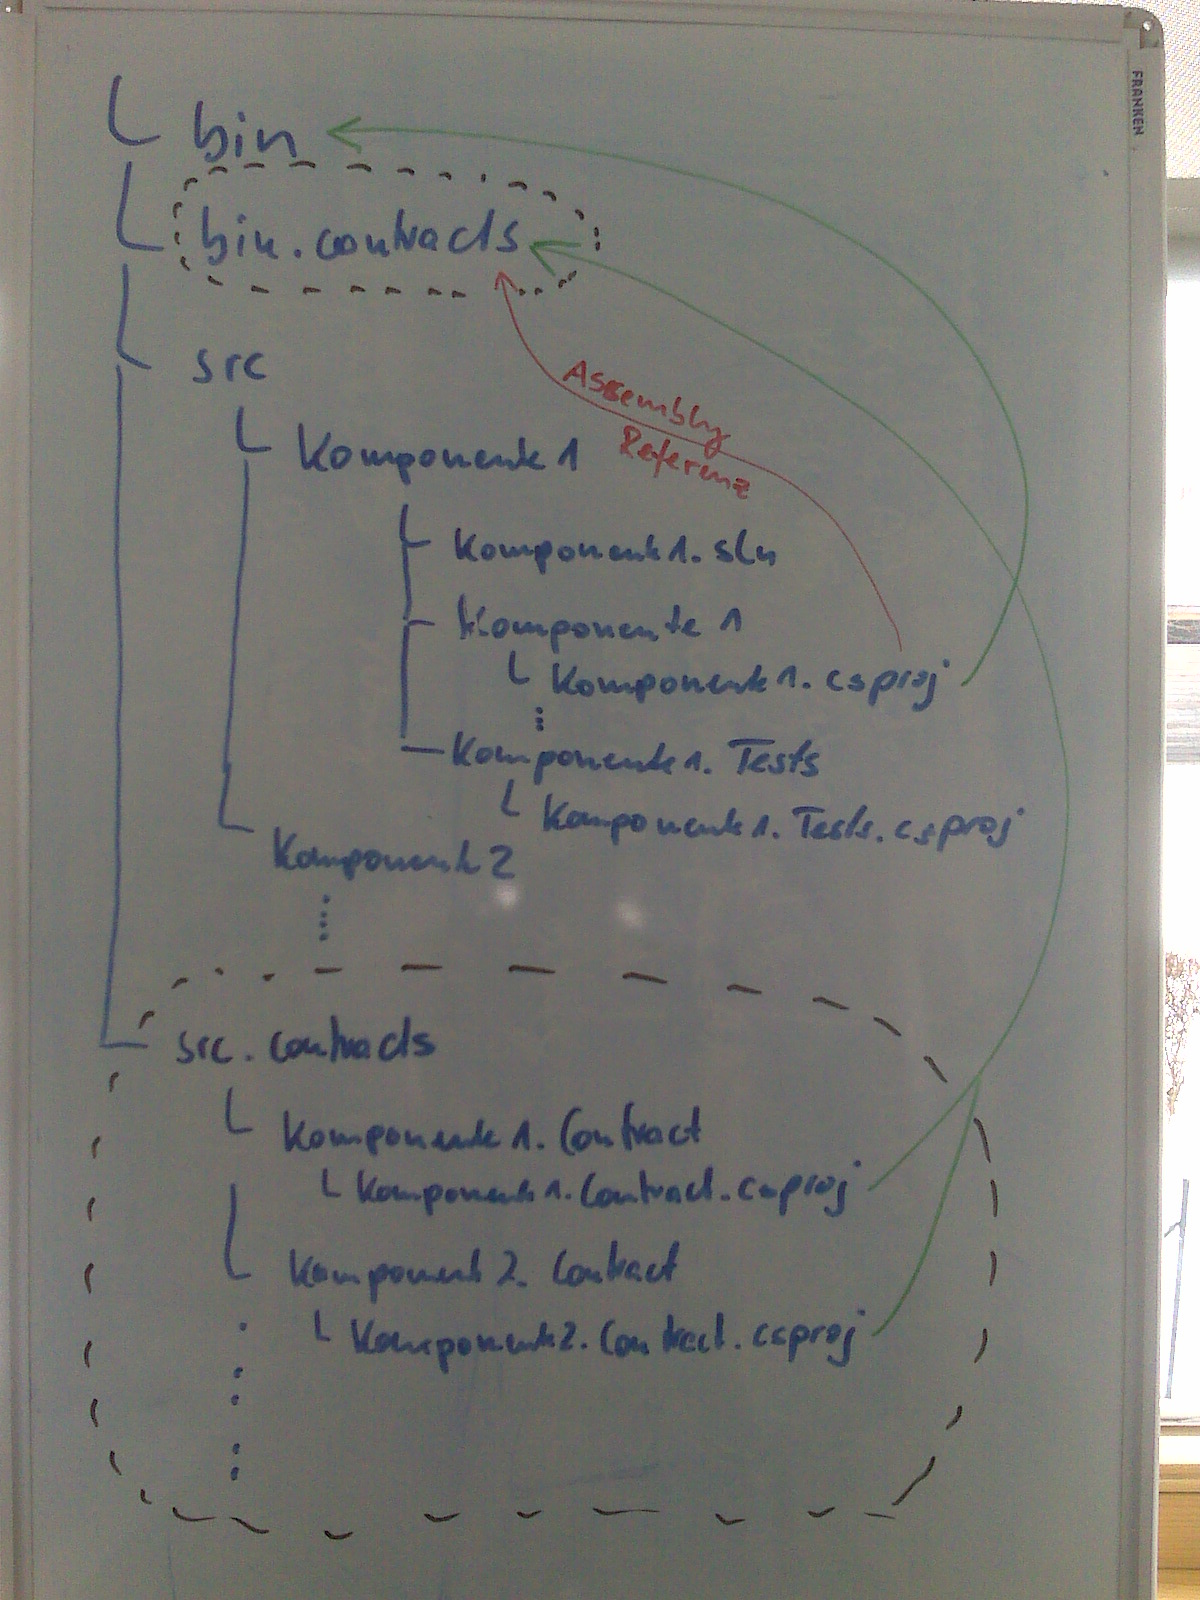 FRANKEN
bin
bin.contracts
src
Assembly
Referenz
Komponente 1
Komponente 1. sln
Komponente 1
Komponente 1. csproj
Komponente 1. Tests
Komponente 1. Tests. csproj
Komponente 2
src. contracts
Komponente 1. Contract
Komponente 1. Contract. csproj
Komponente 2. Contract
Komponente 2. Contract. csproj